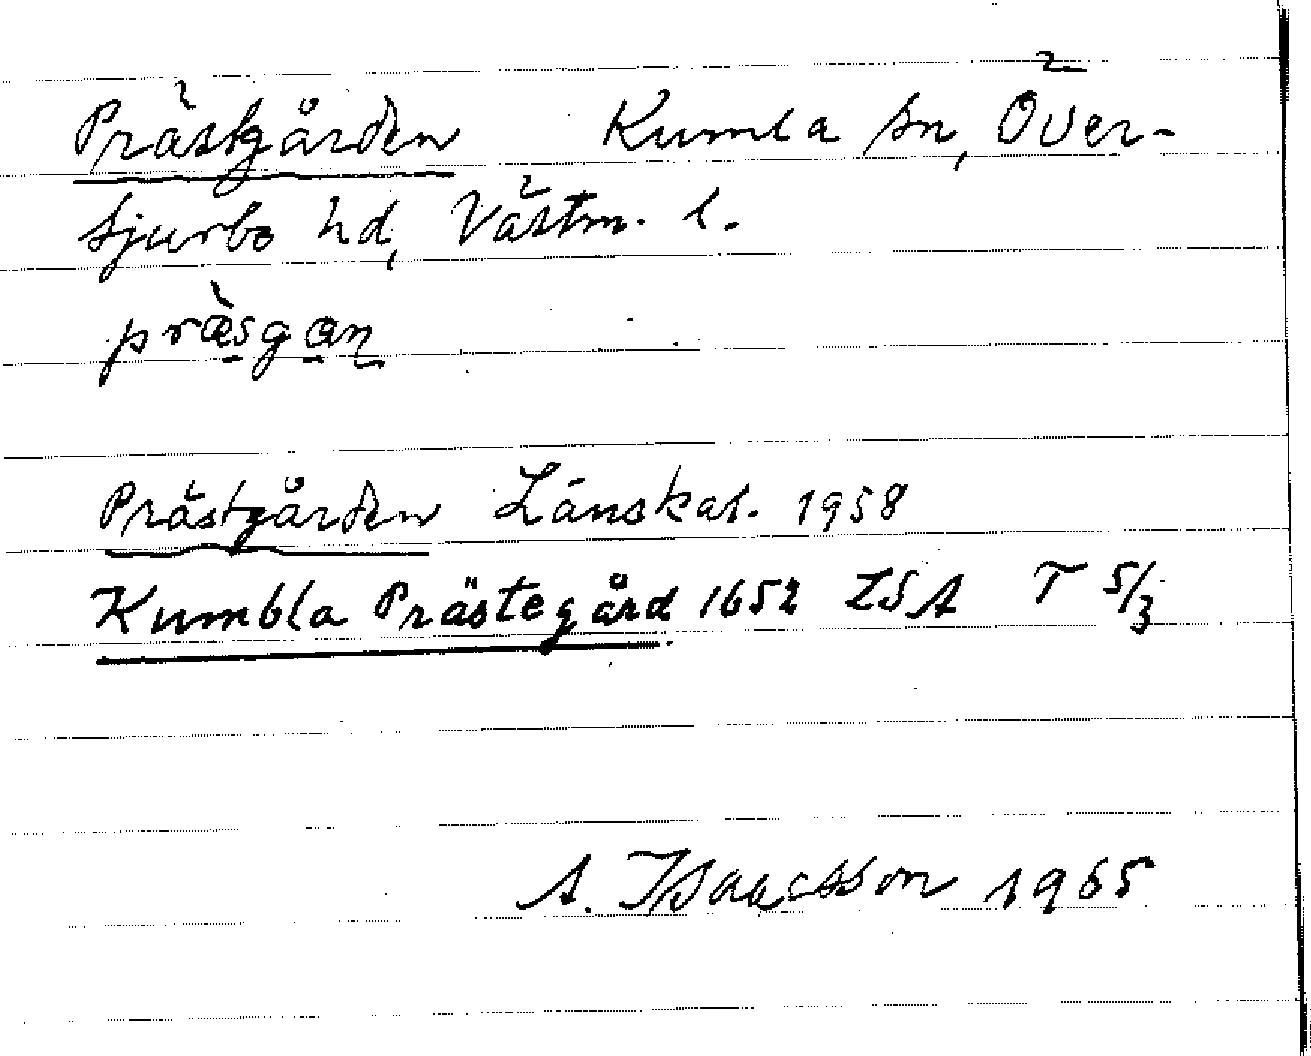 Prästgården Kumla sn, Över-
sjurbo hd, Västm. l.
præ̀sgan
Prästgården Länskat. 1958
Kumbla Prästegård 1652 LSA T 5/3
A. Isaacsson 1965